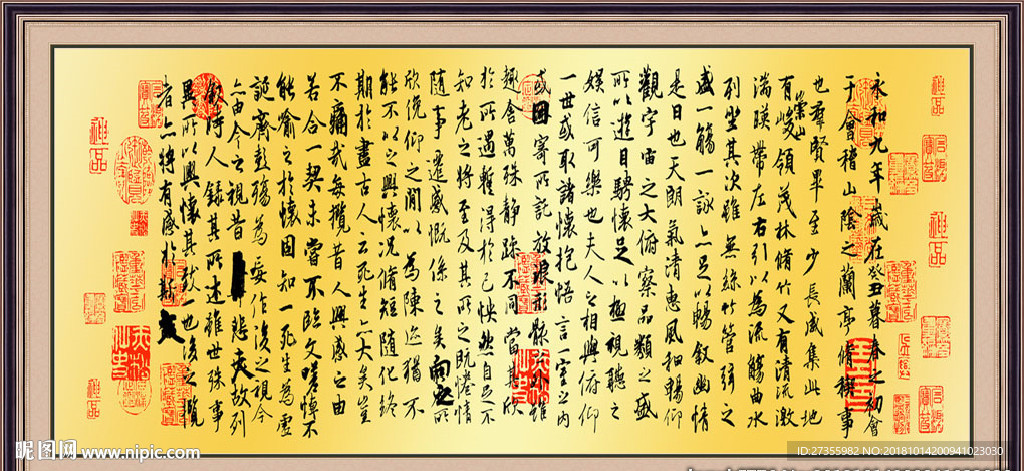 永和九年歲在癸丑暮春之初會
于會稽山陰之蘭亭脩稧事
也羣賢畢至少長咸集此地
有崇山峻領茂林脩竹又有清流激
湍暎帶左右引以為流觴曲水
列坐其次雖無絲竹管弦之
盛一觴一詠亦足以暢敘幽情
是日也天朗氣清惠風和暢仰
觀宇宙之大俯察品類之盛
所以遊目騁懷足以極視聽之
娛信可樂也夫人之相與俯仰
一世或取諸懷抱悟言一室之內
或因寄所託放浪形骸之外雖
趣舍萬殊靜躁不同當其欣
於所遇暫得於己怏然自足不
知老之將至及其所之既惓情
隨事遷感慨係之矣向之所
欣俛仰之閒以為陳迹猶不
能不以之興懷況脩短隨化終
期於盡古人云死生亦大矣豈
不痛哉每攬昔人興感之由
若合一契未嘗不臨文嗟悼不
能喻之於懷固知一死生為虛
誕齊彭殤為妄作後之視今
亦由今之視昔 悲夫故列
敘時人錄其所述雖世殊事
異所以興懷其致一也後之攬
者亦將有感於斯文
昵图网 www.nipic.com
ID:27355982 NO:20181014200941023030